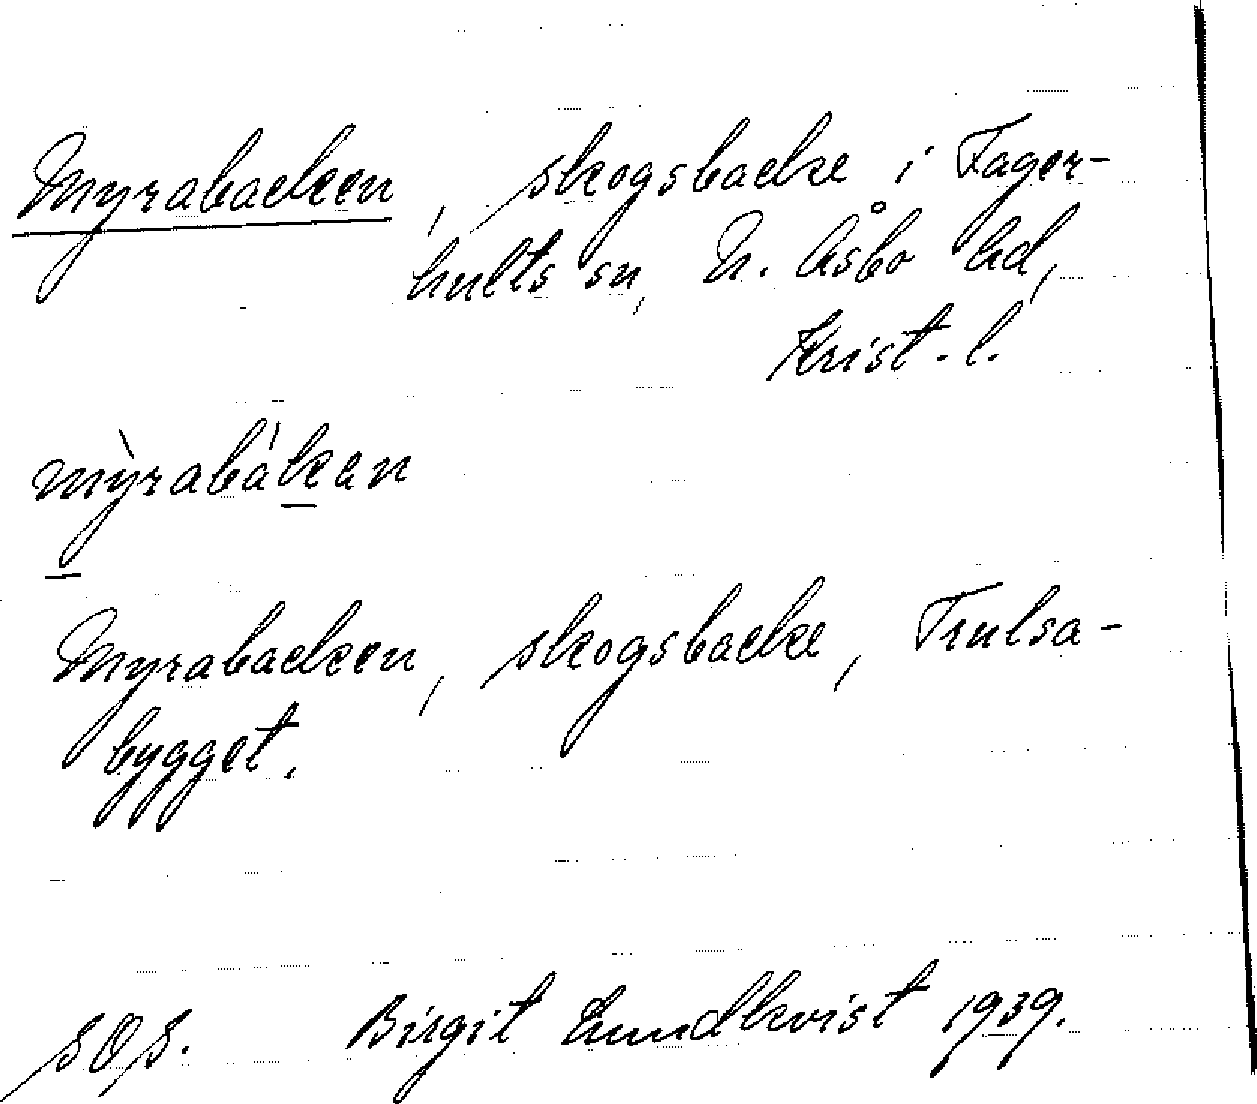 Myrabacken, skogsbacke i Fager-
hults sn, N. Åsbo hd,
Krist. l.
mỳrabákan
Myrabacken, skogsbacke, Trulsa-
bygget.
SOS. Birgit Lundkvist 1939.